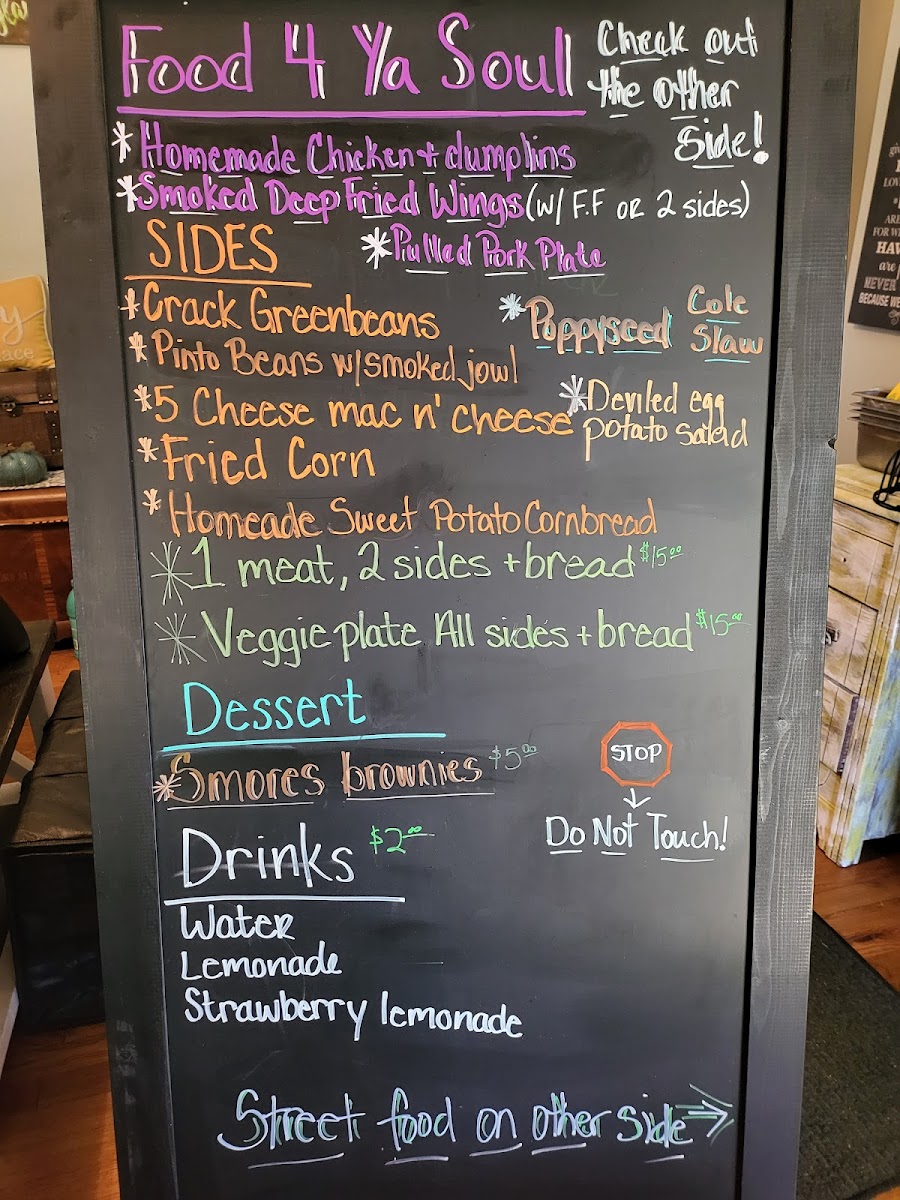 Food 4 Ya Soul
Check out
the other
side!
* Homemade Chicken + dumplins
* Smoked Deep Fried Wings (w/ F.F or 2 sides)
* Pulled Pork Plate
SIDES
* Crack Greenbeans
* Pinto Beans w/smoked jowl
* 5 Cheese mac n' cheese
* Fried Corn
* Homeade Sweet Potato Cornbread
* Poppyseed Cole
Slaw
* Deviled egg
potato salad
* 1 meat, 2 sides + bread $15.00
* Veggie plate All sides + bread $15.00
Dessert
* Smores brownies $5.00
STOP
Do Not Touch!
Drinks $2.00
Water
Lemonade
Strawberry lemonade
Street food on other side
y
lace
LOV
ARE
FOR W
HAV
are
NEVER
BECAUSE WE